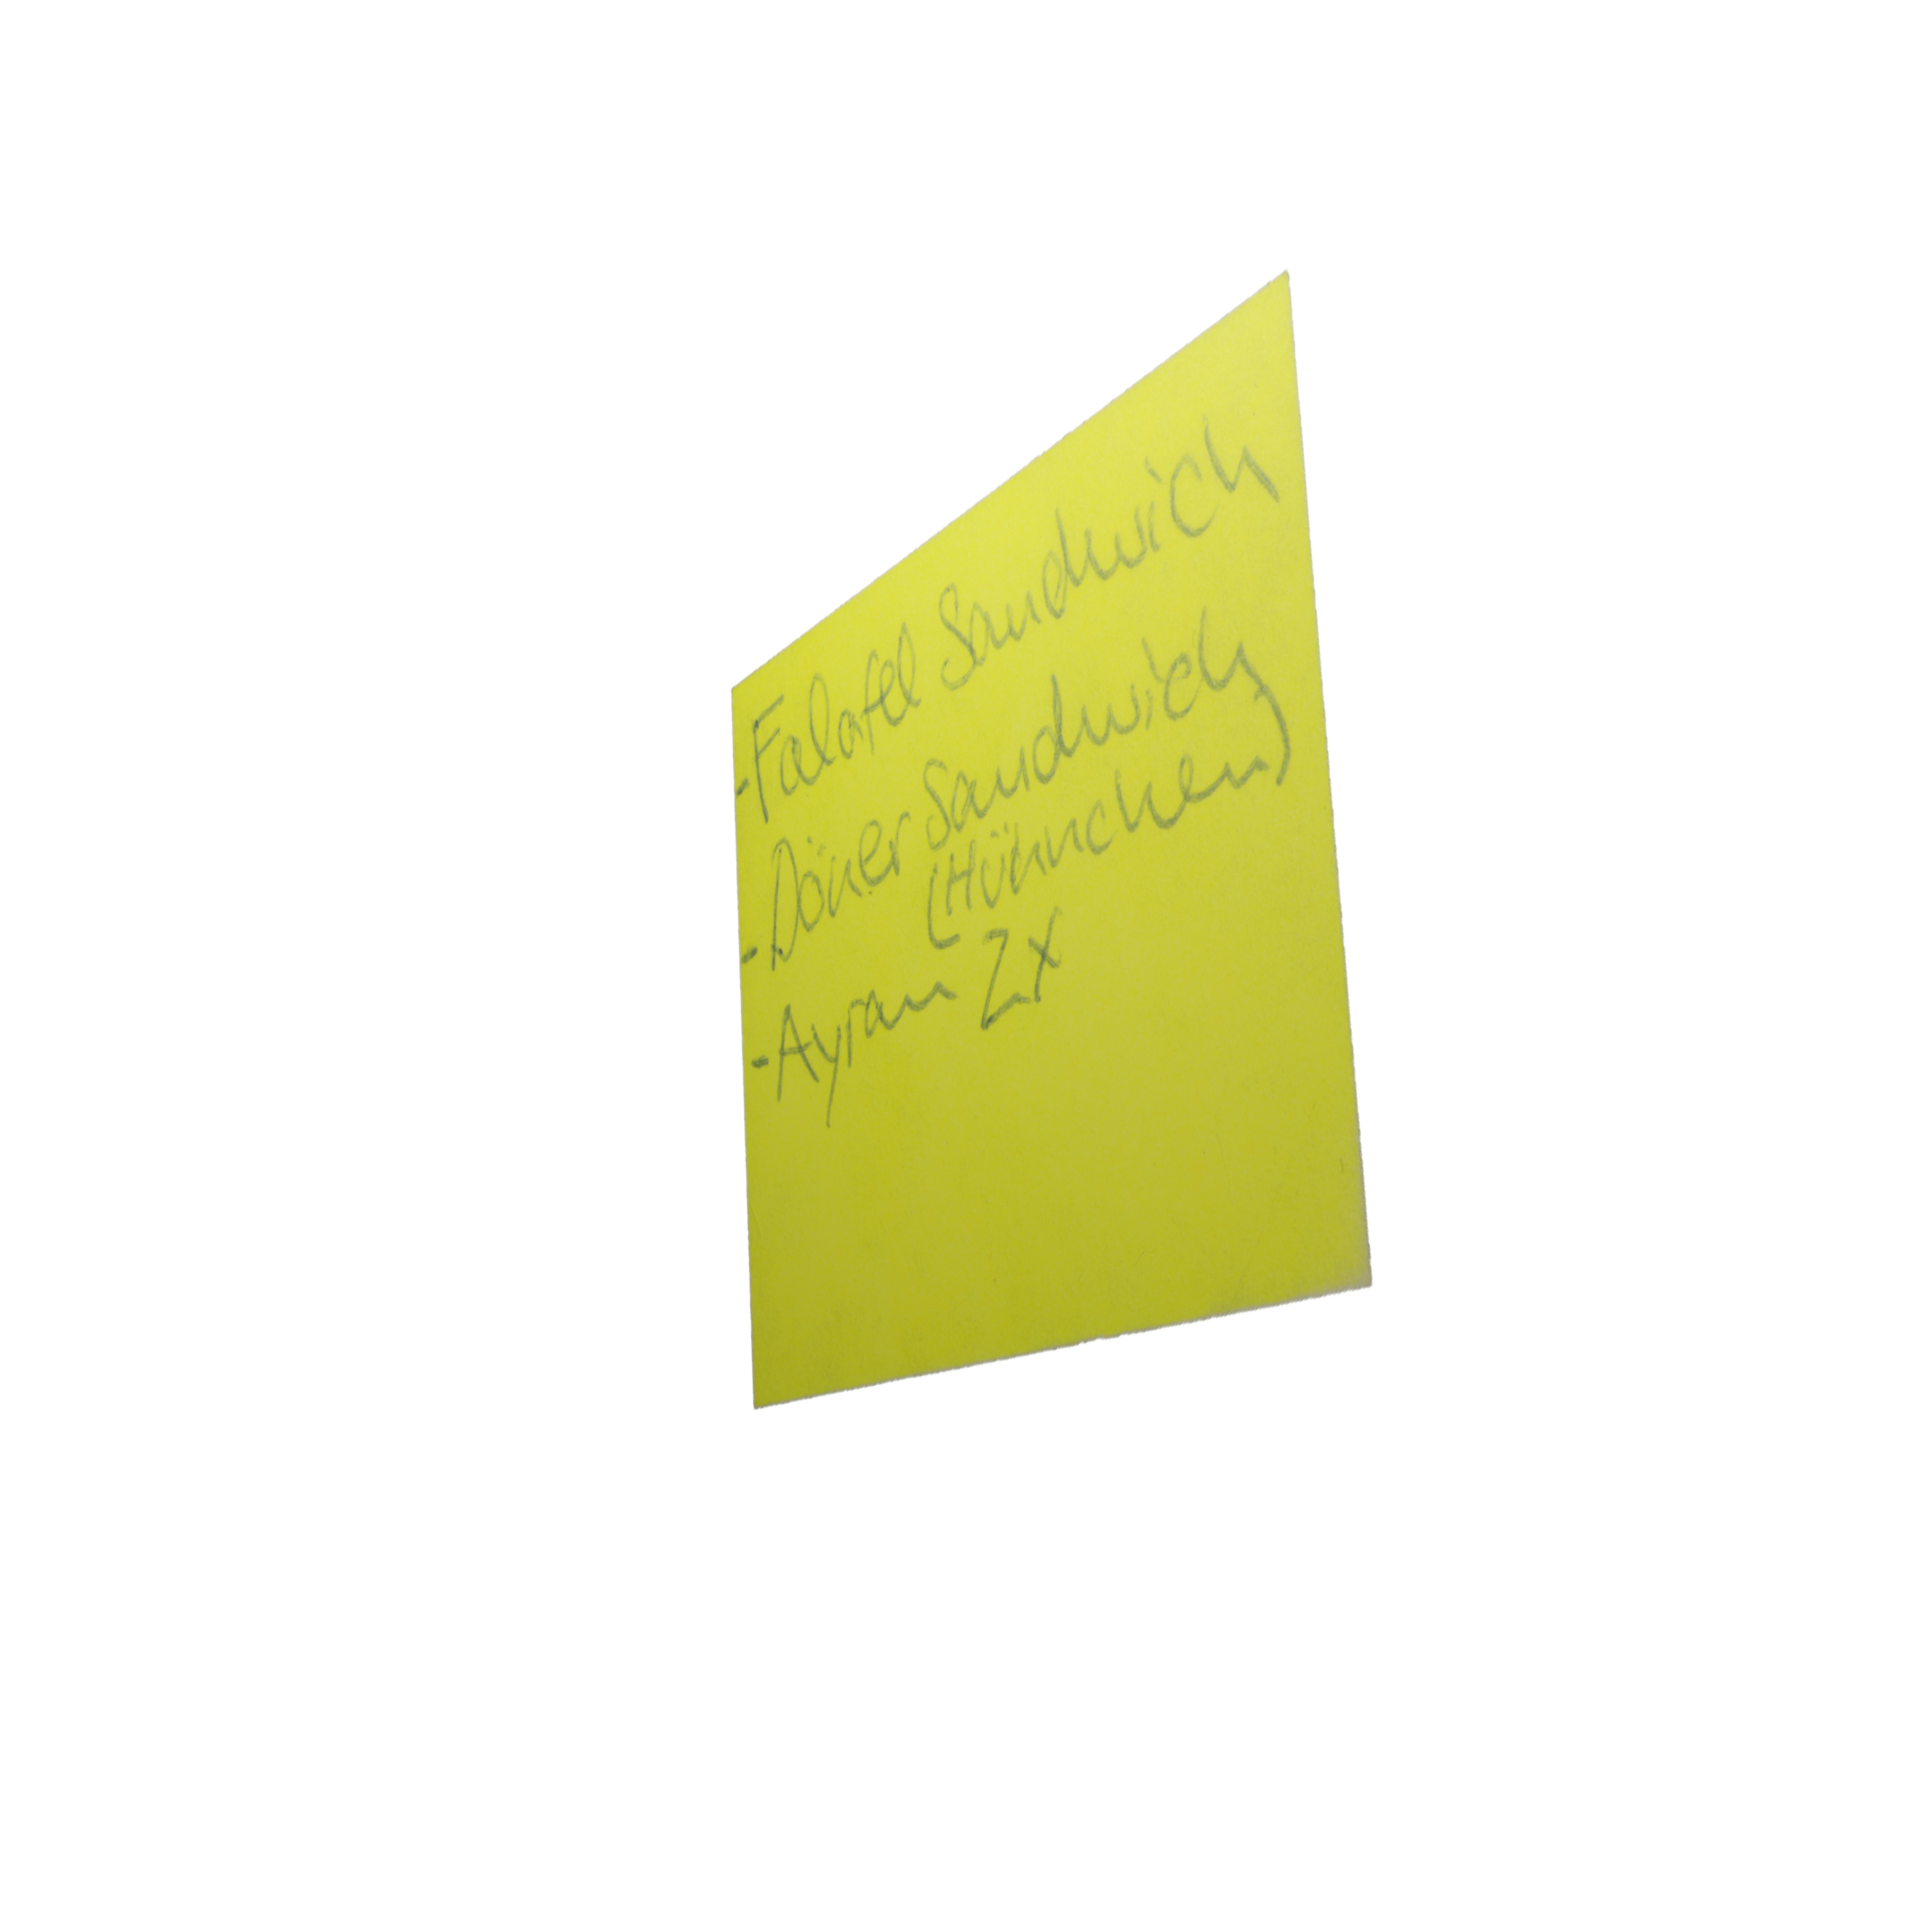 -Falafel Sandwich
-Döner Sandwich
(Hünchen)
-Ayran 2x